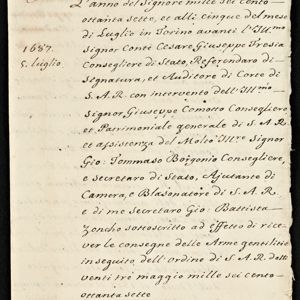 L'anno del Signore mille sei cento
ottanta sette, et alli cinque del mese
di Luglio in Torino avanti l'Ill.mo
1687.
5. luglio.
Signor Conte Cesare Giuseppe Fresia
Consegliere di Stato, Referendaro di
Segnatura, et Auditore di Corte di
S. A. R. con intervento dell'Ill.mo
Signor Giuseppe Comotto Consegliero
et Patrimoniale generale di S. A. R
et assistenza del Molto Ill.re Signor
Gio: Tommaso Borgonio Consegliere,
e secretaro di Stato, Ajutante di
Camera, e Blasonatore di S. A. R
e di me Secretaro Gio: Battista
sottoscritto ad effetto di rice-
ver le consegne delle Arme gentilitie
in seguito dell'ordine di S. A. R. delli
venti tre maggio mille sei cento
ottanta sette